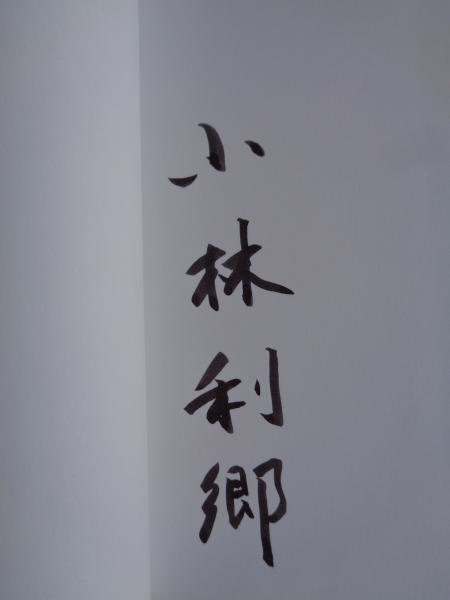 小林利郷